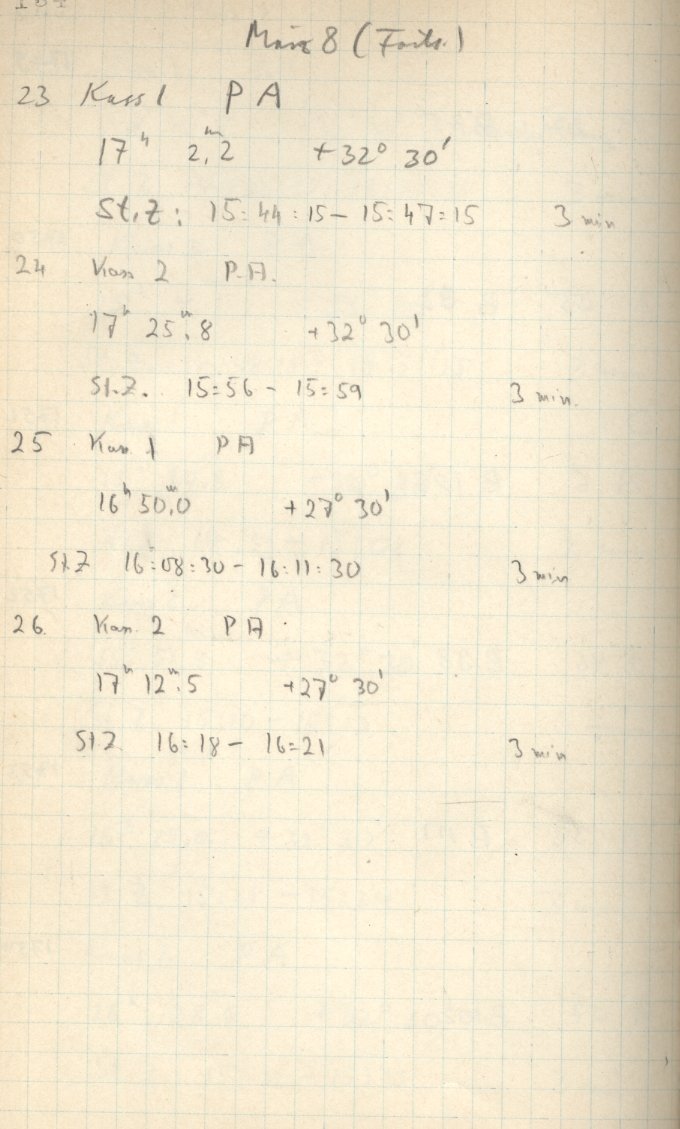 März 8 (Forts.)
23 Kass 1 P A
17ʰ 2,ᵐ2 +32° 30'
St.Z: 15:44:15 – 15:47:15 3 min
24 Kass 2 P.A.
17ʰ 25ᵐ.8 +32° 30'
St.Z. 15:56 – 15:59 3 min.
25 Kass 1 PA
16ʰ 50ᵐ.0 +27° 30'
St.Z 16:08:30 – 16:11:30 3 min
26. Kass. 2 PA
17ʰ 12ᵐ.5 +27° 30'
StZ 16:18 – 16:21 3 min